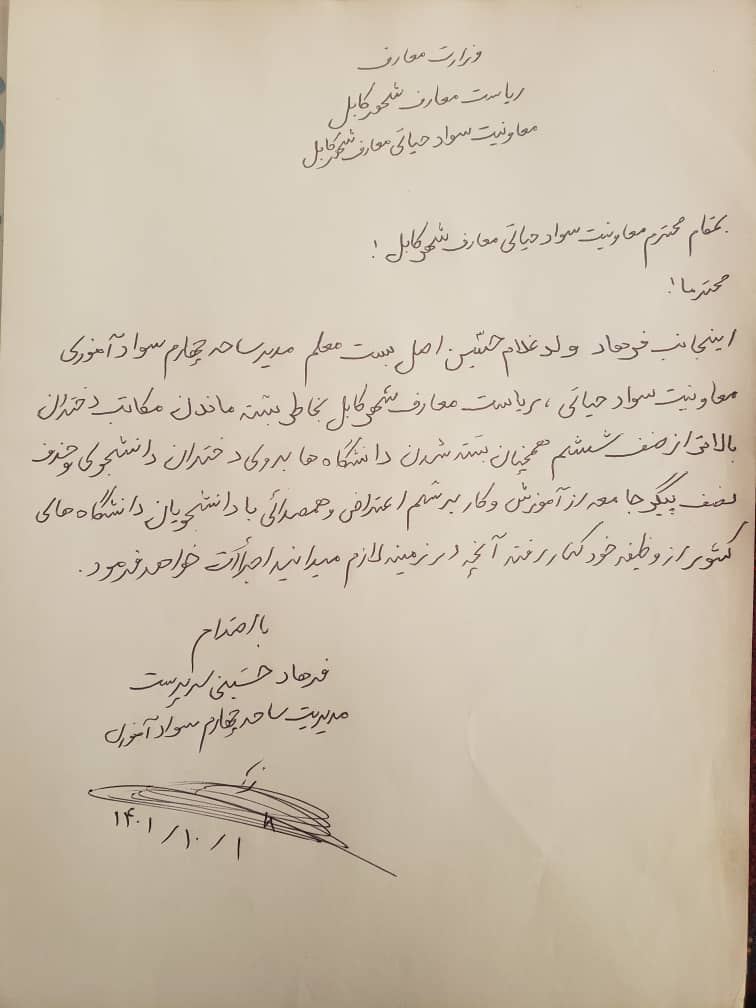 وزارت معارف
ریاست معارف شهر کابل
معاونیت سواد حیاتی معارف شهر کابل
بمقام محترم معاونیت سواد حیاتی معارف شهر کابل !
محترما !
اینجانب فرهاد ولد غلام حسین اصل بست معلم مدیر ساحه چهارم سواد آموزی
معاونیت سواد حیاتی ، ریاست معارف شهر کابل بخاطر بسته ماندن مکاتب دختران
بالاتر از صنف ششم همچنان بسته شدن دانشگاه ها بروی دختران دانشجوی و حذف
نصف پیکر جامعه از آموزش و کار برسم اعتراض و همصدائی با دانشجویان دانشگاه های
کشور از وظیفه خود کنار رفته آنچه در زمینه لازم میدانید اجراآت خواهد فرمود.
با احترام
فرهاد حسینی سرپرست
مدیریت ساحه چهارم سواد آموزی
۱۴۰۱/۱۰/۱